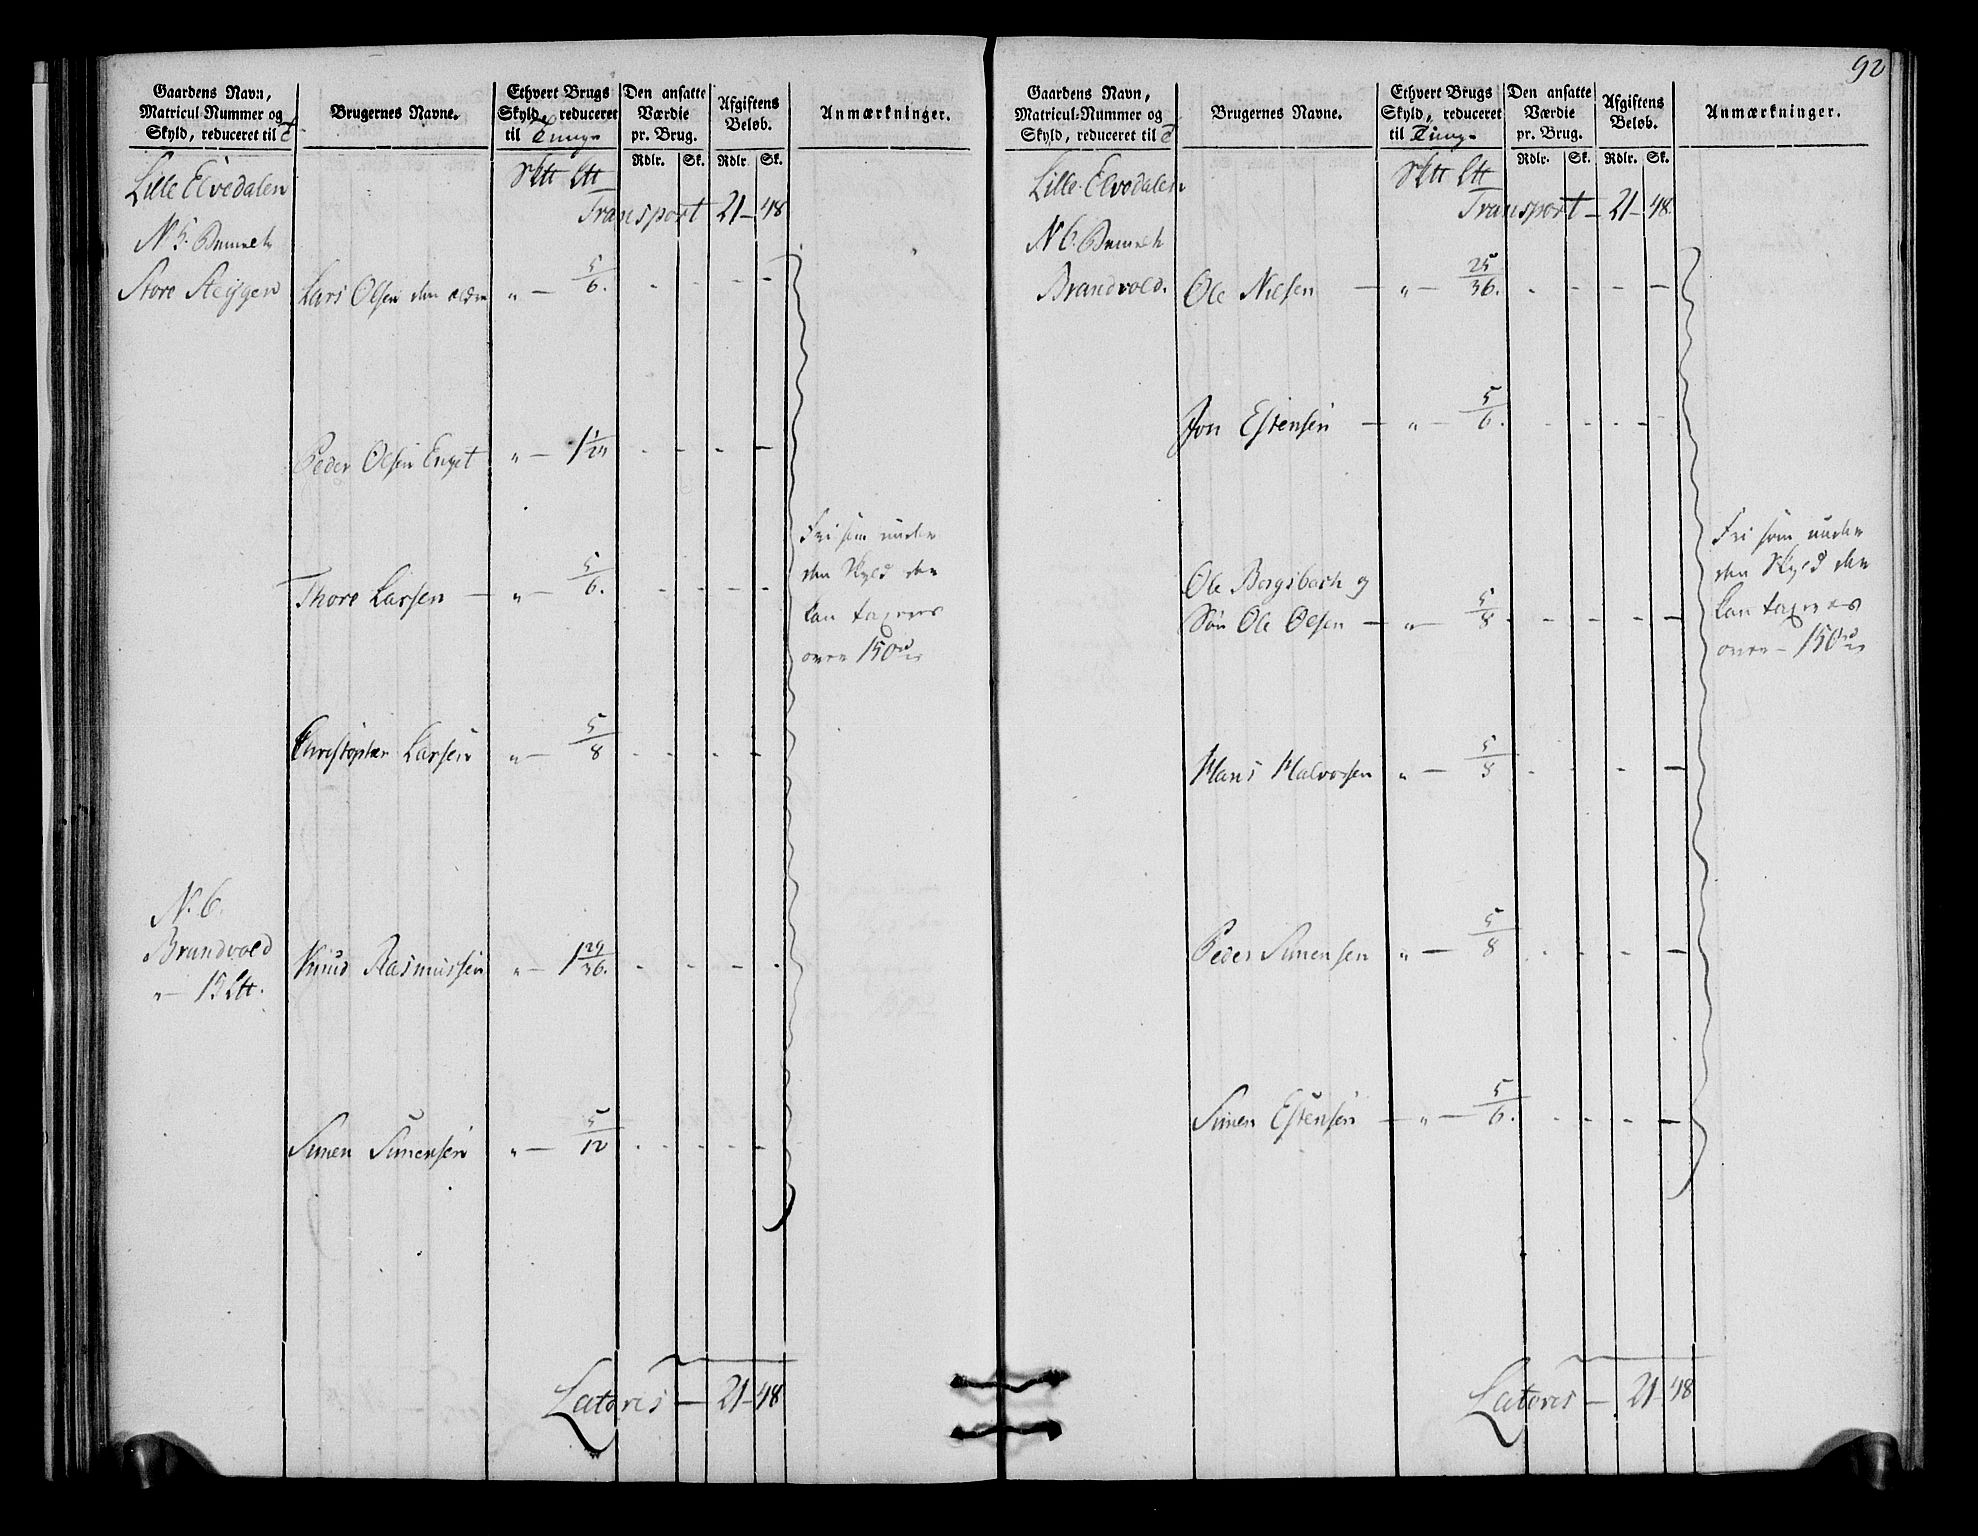 92
Gaardens Navn,
Matricul-Nummer og
Skyld, reduceret til
Brugernes Navne.
Ethvert Brugs
Skyld, reduceret
til Tunge
Den ansatte
Værdie
pr. Brug.
Rdlr. Sk.
Afgiftens
Beløb.
Rdlr. Sk.
Anmærkninger.
Lille Elvedalen
Transport 21 - 48
N 5.
Store Steigen Lars Olsen den ældre " - 5/6.
Peder Olsen Enget " - 1 1/24
Thore Larsen - " - 5/6.
Fri som under
den Skyld der
kan taxeres
over 150
Christopher Larsen " - 5/8
N. 6.
Brandvold Knud Rasmussen " - 1 29/36.
" - 15
Simen Simensen " - 5/12
Lateris - 21 - 48
Gaardens Navn,
Matricul-Nummer og
Skyld, reduceret til
Brugernes Navne.
Ethvert Brugs
Skyld, reduceret
til Tunge
Den ansatte
Værdie
pr. Brug.
Rdlr. Sk.
Afgiftens
Beløb.
Rdlr. Sk.
Anmærkninger.
Lille Elvedalen
Transport - 21 - 48
N 6.
Brandvold. Ole Nilsen - " - 25/36.
Jon Estensen - " - 5/6.
Ole Bergsbach og
Søn Ole Olsen - " - 5/8
Fri som under
den Skyld der
kan taxeres
over - 150
Hans Halvorsen " - 5/8
Peder Simensen " - 5/8
Simen Estensen - " - 5/6.
Lateris - 21 - 48